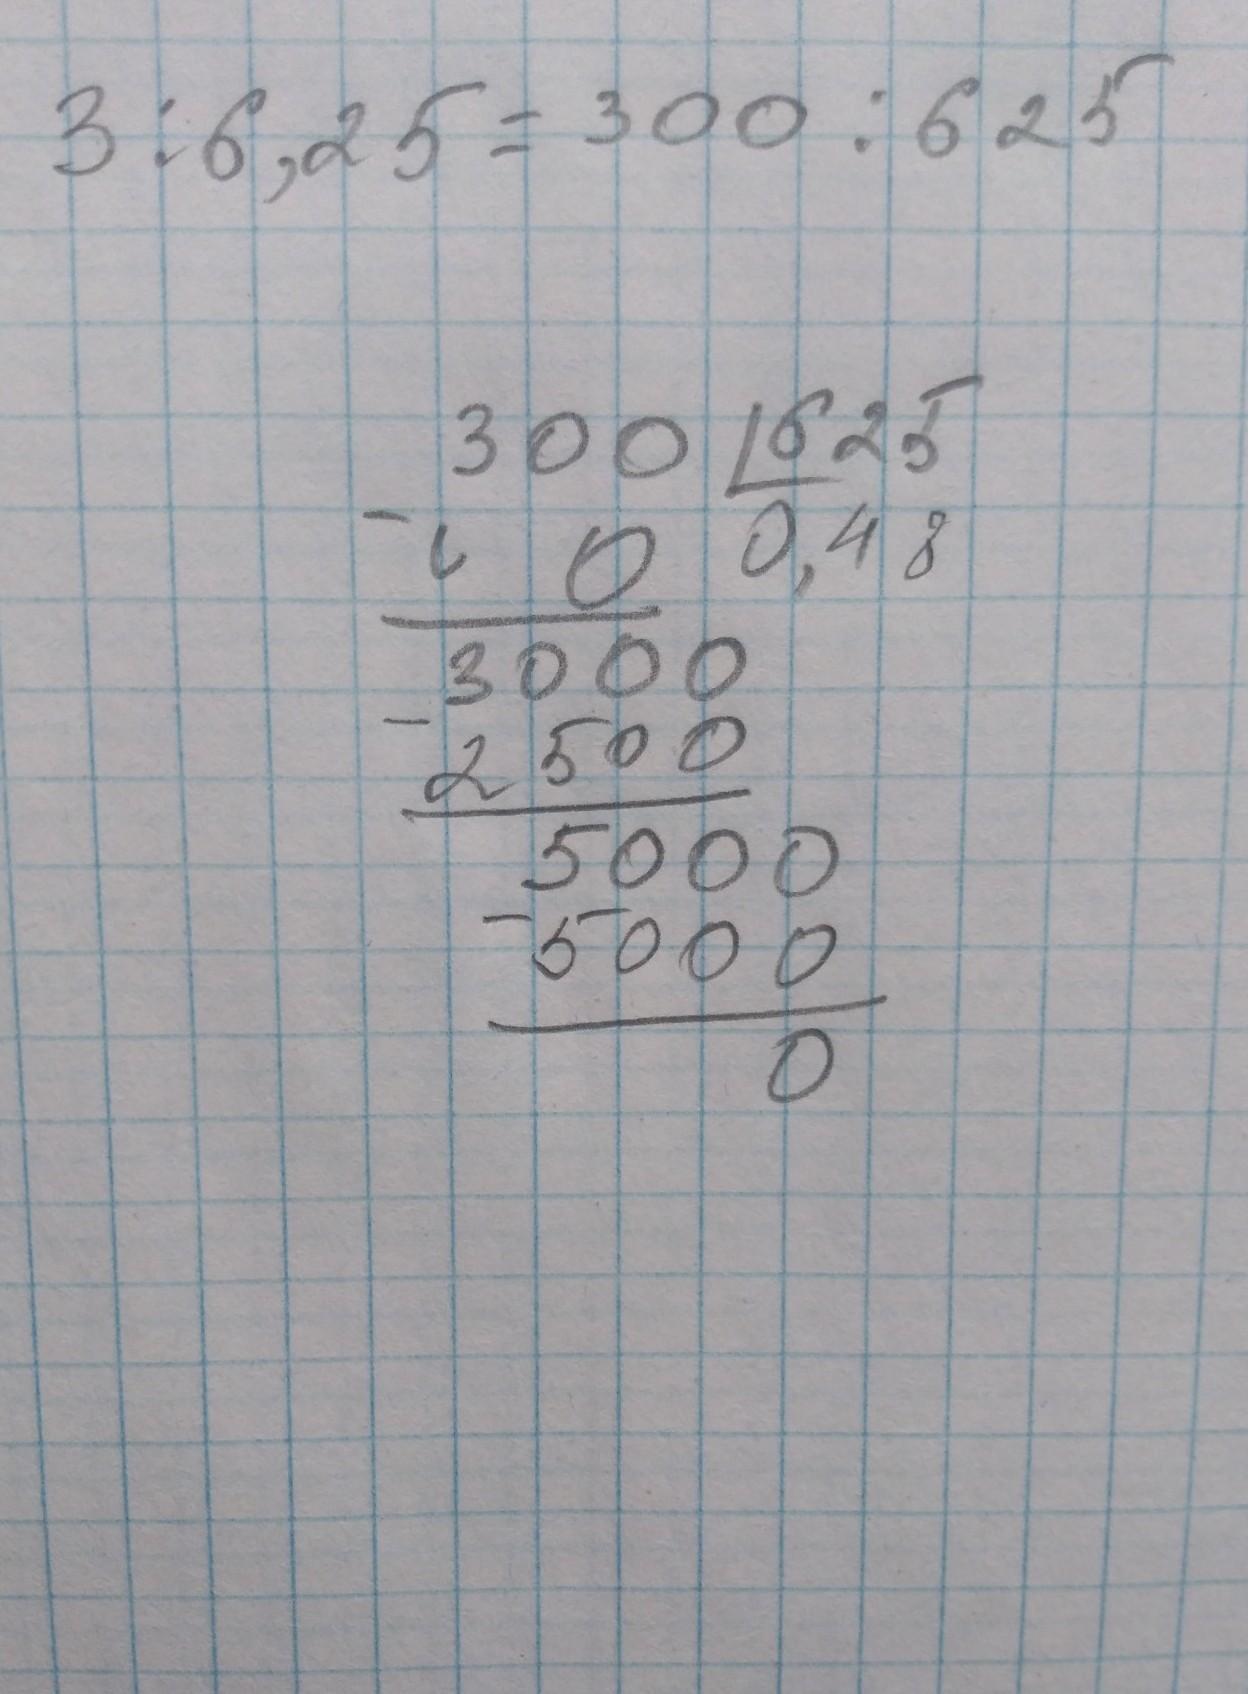 3:6,25=300:625
300 |625
- 0 0,48
3000
- 2500
5000
- 5000
0